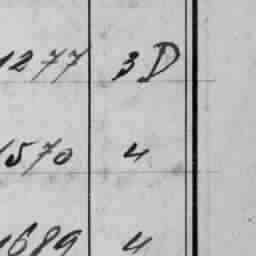 1277 3D
1570 4
1689 4